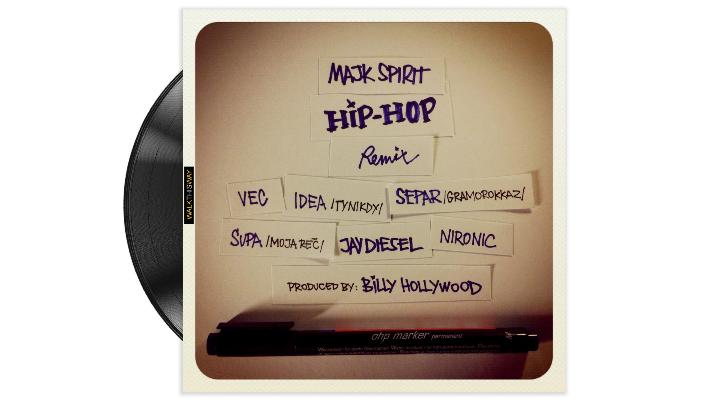 MAJK SPIRIT
HIP-HOP
Remix
VEC IDEA /TYNIKDY/ SEPAR /GRAMOROKKAZ/
SUPA /MOJA REČ/ JAY DIESEL NIRONIC
PRODUCED BY: BILLY HOLLYWOOD
ohp marker permanent
WALKTHISWAY